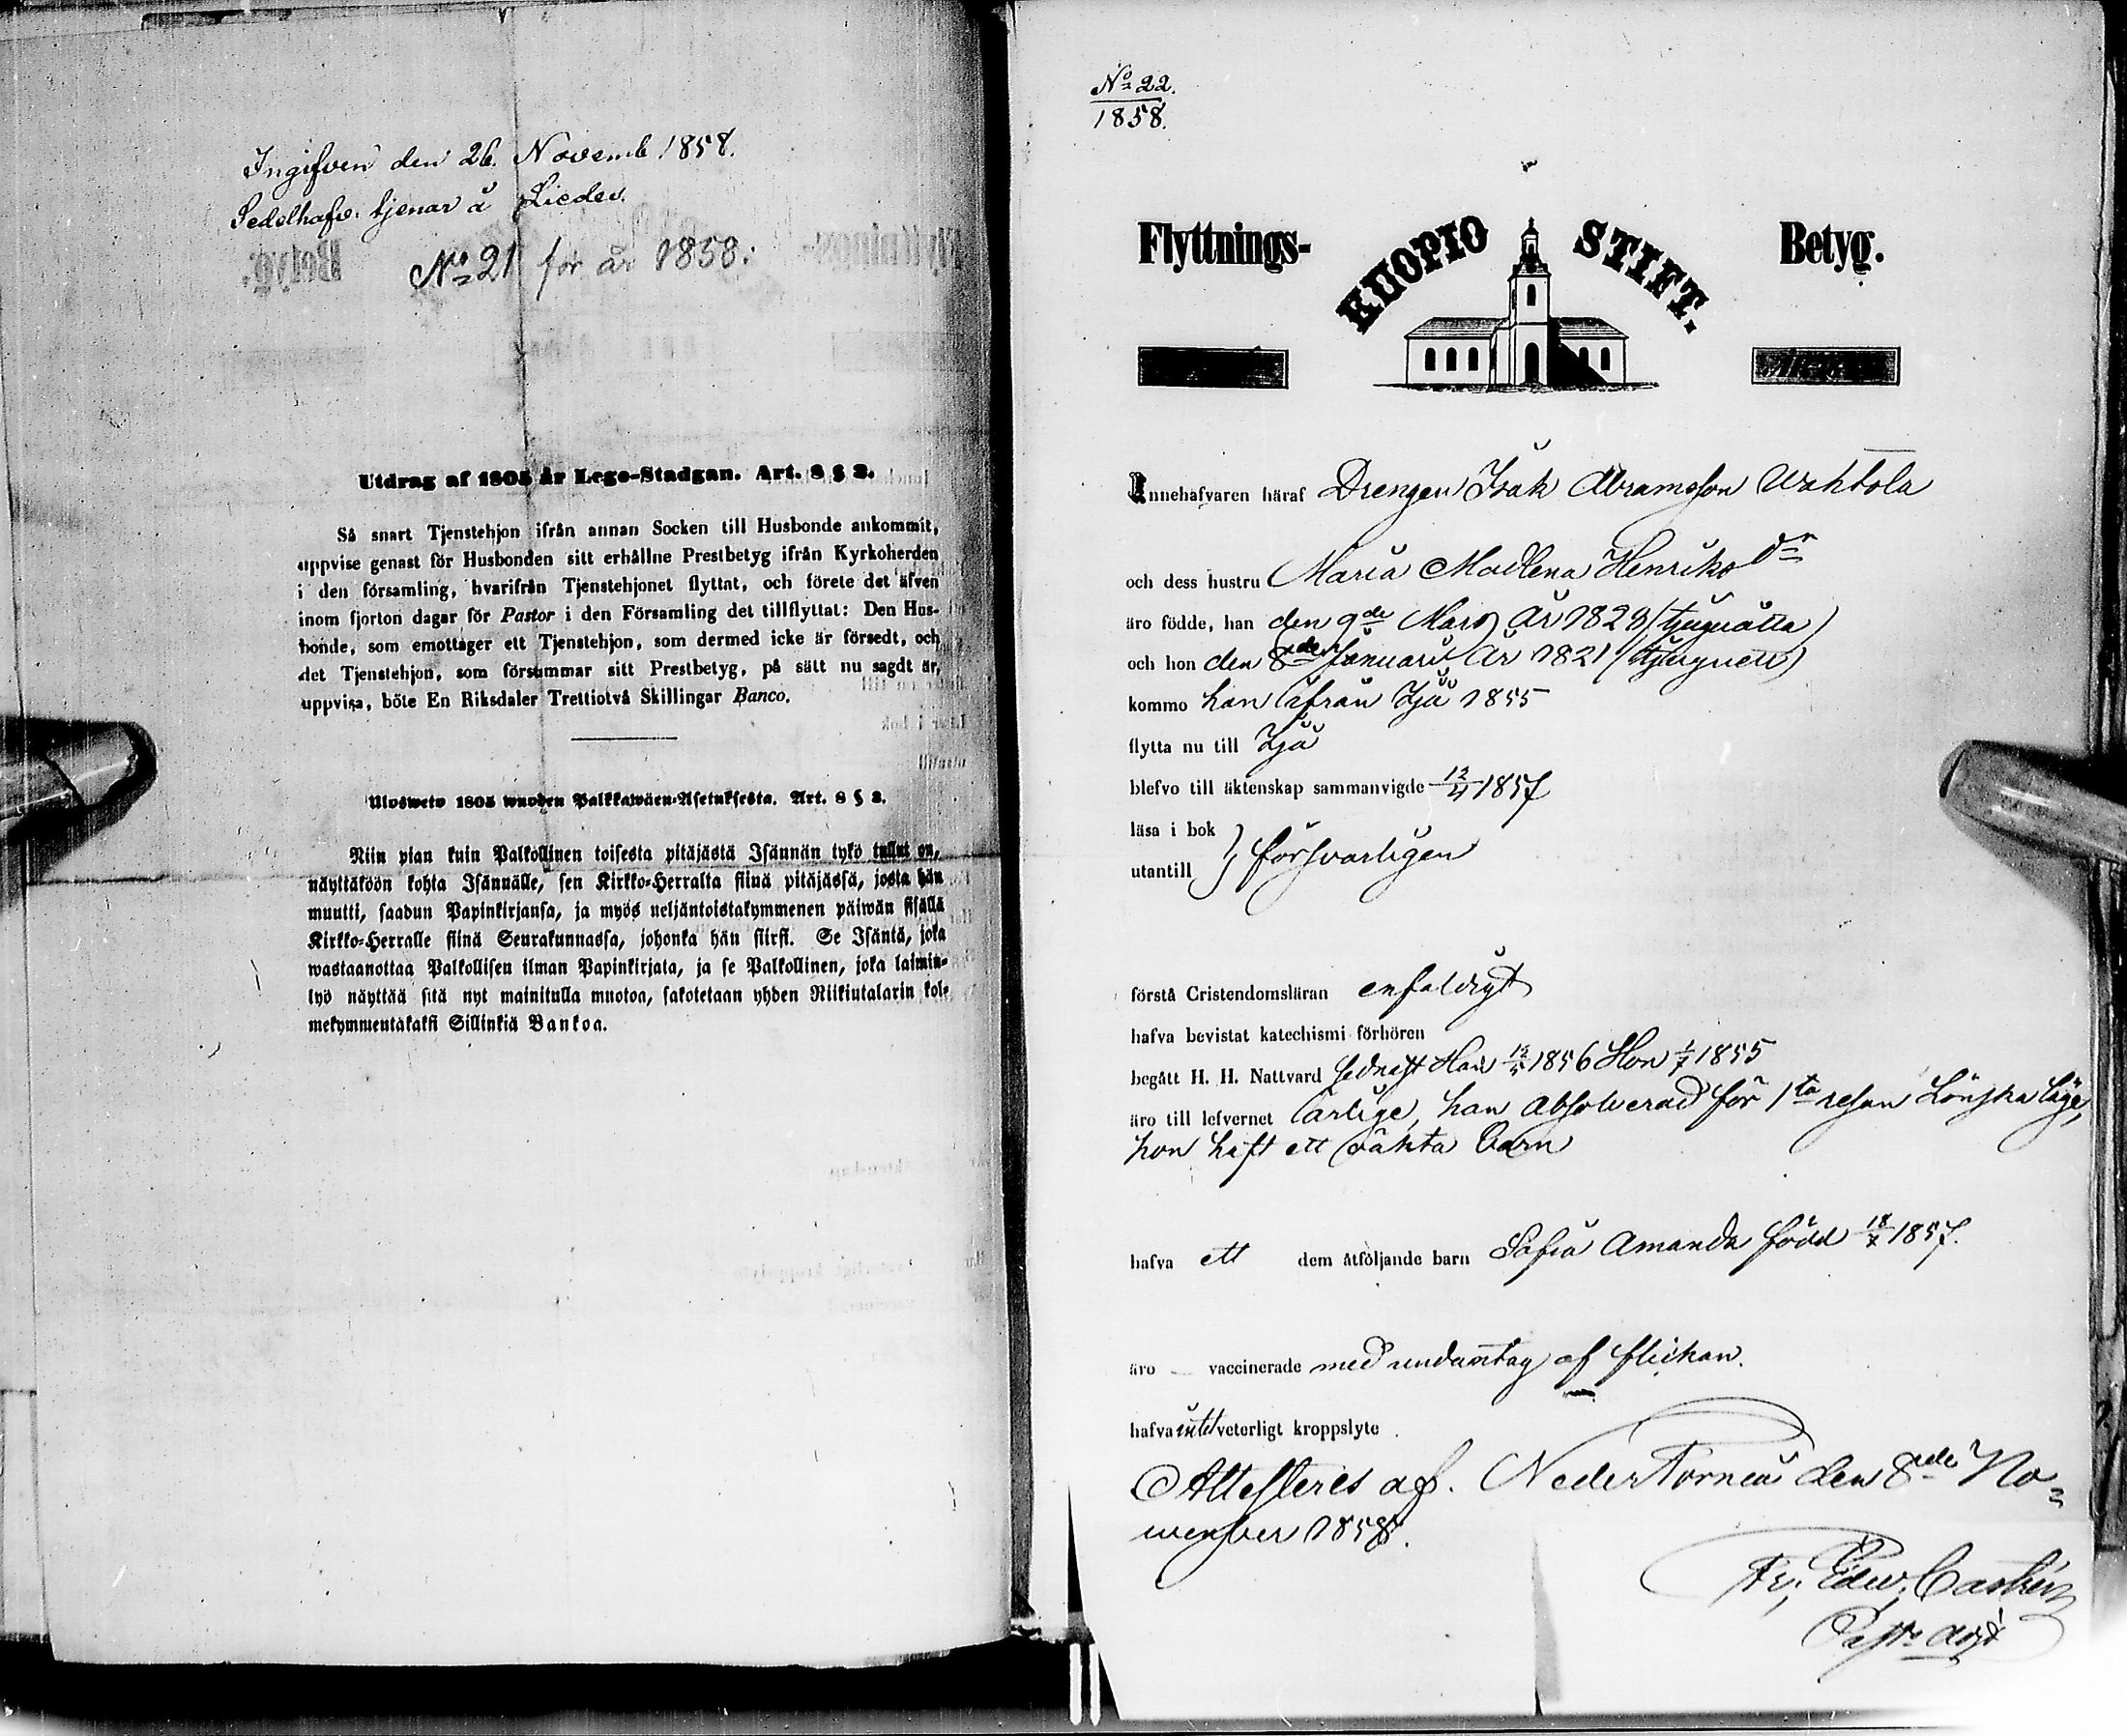 Ingifven den 26. Novemb. 1858.
Sedelhafv. tjenar å Liedes.
No 21 för år 1858.
Utdrag af 1805 år Lego-Stadgan. Art. 8 § 2.
Så snart Tjenstehjon ifrån annan Socken till Husbonde ankommit,
uppvise genast för Husbonden sitt erhållne Prestbetyg ifrån Kyrkoherden
i den församling, hvarifrån Tjenstehjonet flyttat, och förete det äfven
inom fjorton dagar för Pastor i den Församling det tillflyttat: Den Hus-
bonde, som emottager ett Tjenstehjon, som dermed icke är försedt, och
det Tjenstehjon, som försummar sitt Prestbetyg, på sätt nu sagdt är,
uppvisa, böte En Riksdaler Trettiotvå Skillingar Banco.
Ulosweto 1805 wuoden Palkkawäen-Asetuksesta. Art. 8 § 2.
Niin pian kuin Palkollinen toisesta pitäjästä Isännän tykö tullut on,
näyttäköön kohta Isännälle, sen Kirkko-Herralta siinä pitäjässä, josta hän
muutti, saadun Papinkirjansa, ja myös neljäntoistakymmenen päiwän sisällä
Kirkko-Herralle siinä Seurakunnassa, johonka hän siirsi. Se Isäntä, joka
wastaanottaa Palkollisen ilman Papinkirjata, ja se Palkollinen, joka laimin-
lyö näyttää sitä nyt mainitulla muotoa, sakotetaan yhden Riikiutalarin kol-
mekymmentäkaksi Sillinkiä Bankoa.
No 22.
1858.
Flyttnings- KUOPIO STIFT. Betyg.
Innehafvaren häraf Drengen Isak Abramsson Wahtola
och dess hustru Maria Madlena Henriksdr
äro födde, han den 9de Mars År 1828 (tjuguåtta)
och hon den 8de Januari År 1821 (tjuguett)
kommo han ifrån Ijå 1855
flytta nu till Ijå
blefvo till äktenskap sammanvigde 12/4 1857
läsa i bok
utantill } försvarligen
förstå Cristendomsläran enfaldigt
hafva bevistat katechismi förhören
begått H. H. Nattvard sednast Han 12/5 1856 Hon 1/7 1855
äro till lefvernet ärlige, han absolverad för 1ta resan Lönskaläge,
hon haft ett oäkta barn
hafva ett dem åtföljande barn Sofia Amanda född 18/7 1857.
äro vaccinerade med undantag af flickan.
hafva intet veterligt kroppslyte
Attesteres af. NederTorneå den 8de No-
wember 1858.
Fr. Edw. Castrén